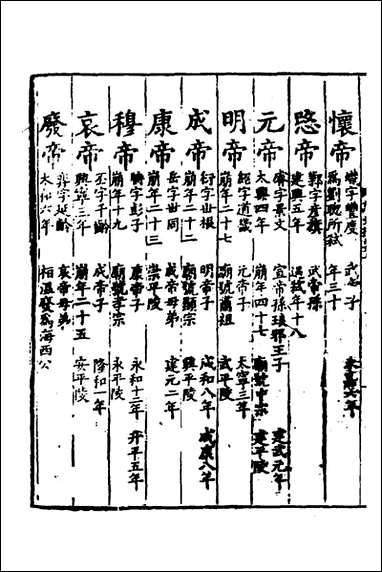 懷帝 熾字豐度 武帝子 永嘉六年
爲劉聰所弑 年三十
愍帝 鄴字彥旗 武帝孫
建興五年 遇弑年十八
元帝 睿字景文 宣帝孫琅邪王子 建武元年
太興四年 崩年四十七 廟號中宗 建平陵
明帝 紹字道畿 元帝子 太寧三年
崩年二十七 廟號肅祖 武平陵
成帝 衍字世根 明帝子 咸和八年 咸康八年
崩年二十二 廟號顯宗 興平陵
康帝 岳字世同 成帝母弟 建元二年
崩年二十三 崇平陵
穆帝 聃字彭子 康帝子 永和十二年 升平五年
崩年十九 廟號孝宗 永平陵
哀帝 丕字千齡 成帝子 隆和一年
興寧三年 崩年二十五 安平陵
廢帝 奕字延齡 哀帝母弟
太和六年 桓溫廢爲海西公